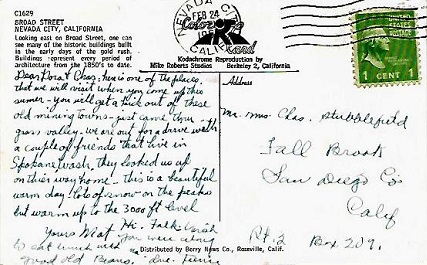 C1629
BROAD STREET
NEVADA CITY, CALIFORNIA
Looking east on Broad Street, one can
see many of the historic buildings built
in the early days of the gold rush.
Buildings represent every period of
architecture from the 1850's to date.
Dear Dora & Chas, here is one of the places
that we will visit when you come up this
sumer - you will get a kick out of these
old mining Towns - just came thru -
grass valley. we are out for a drive with
a couple of friends that live in
Spokane wash, they looked us up
on their way home - This is a beautiful
warm day! lots of snow on the peaks
but warm up to the 3000 ft level
Yours Mat
Hi, Falk. Wish
you were along
to eat lunch with
good old Beans.
NEVADA CITY
FEB 24
CALIF.
Color Card
Kodachrome Reproduction by
Mike Roberts Studios
Berkeley 2, California
Address
1 CENT 1
Mr. Mrs Chas. Stubblefield
Fall Brook
San Diego Co
Calif
Rt. 2 Box 209.
Distributed by Berry News Co., Roseville, Calif.